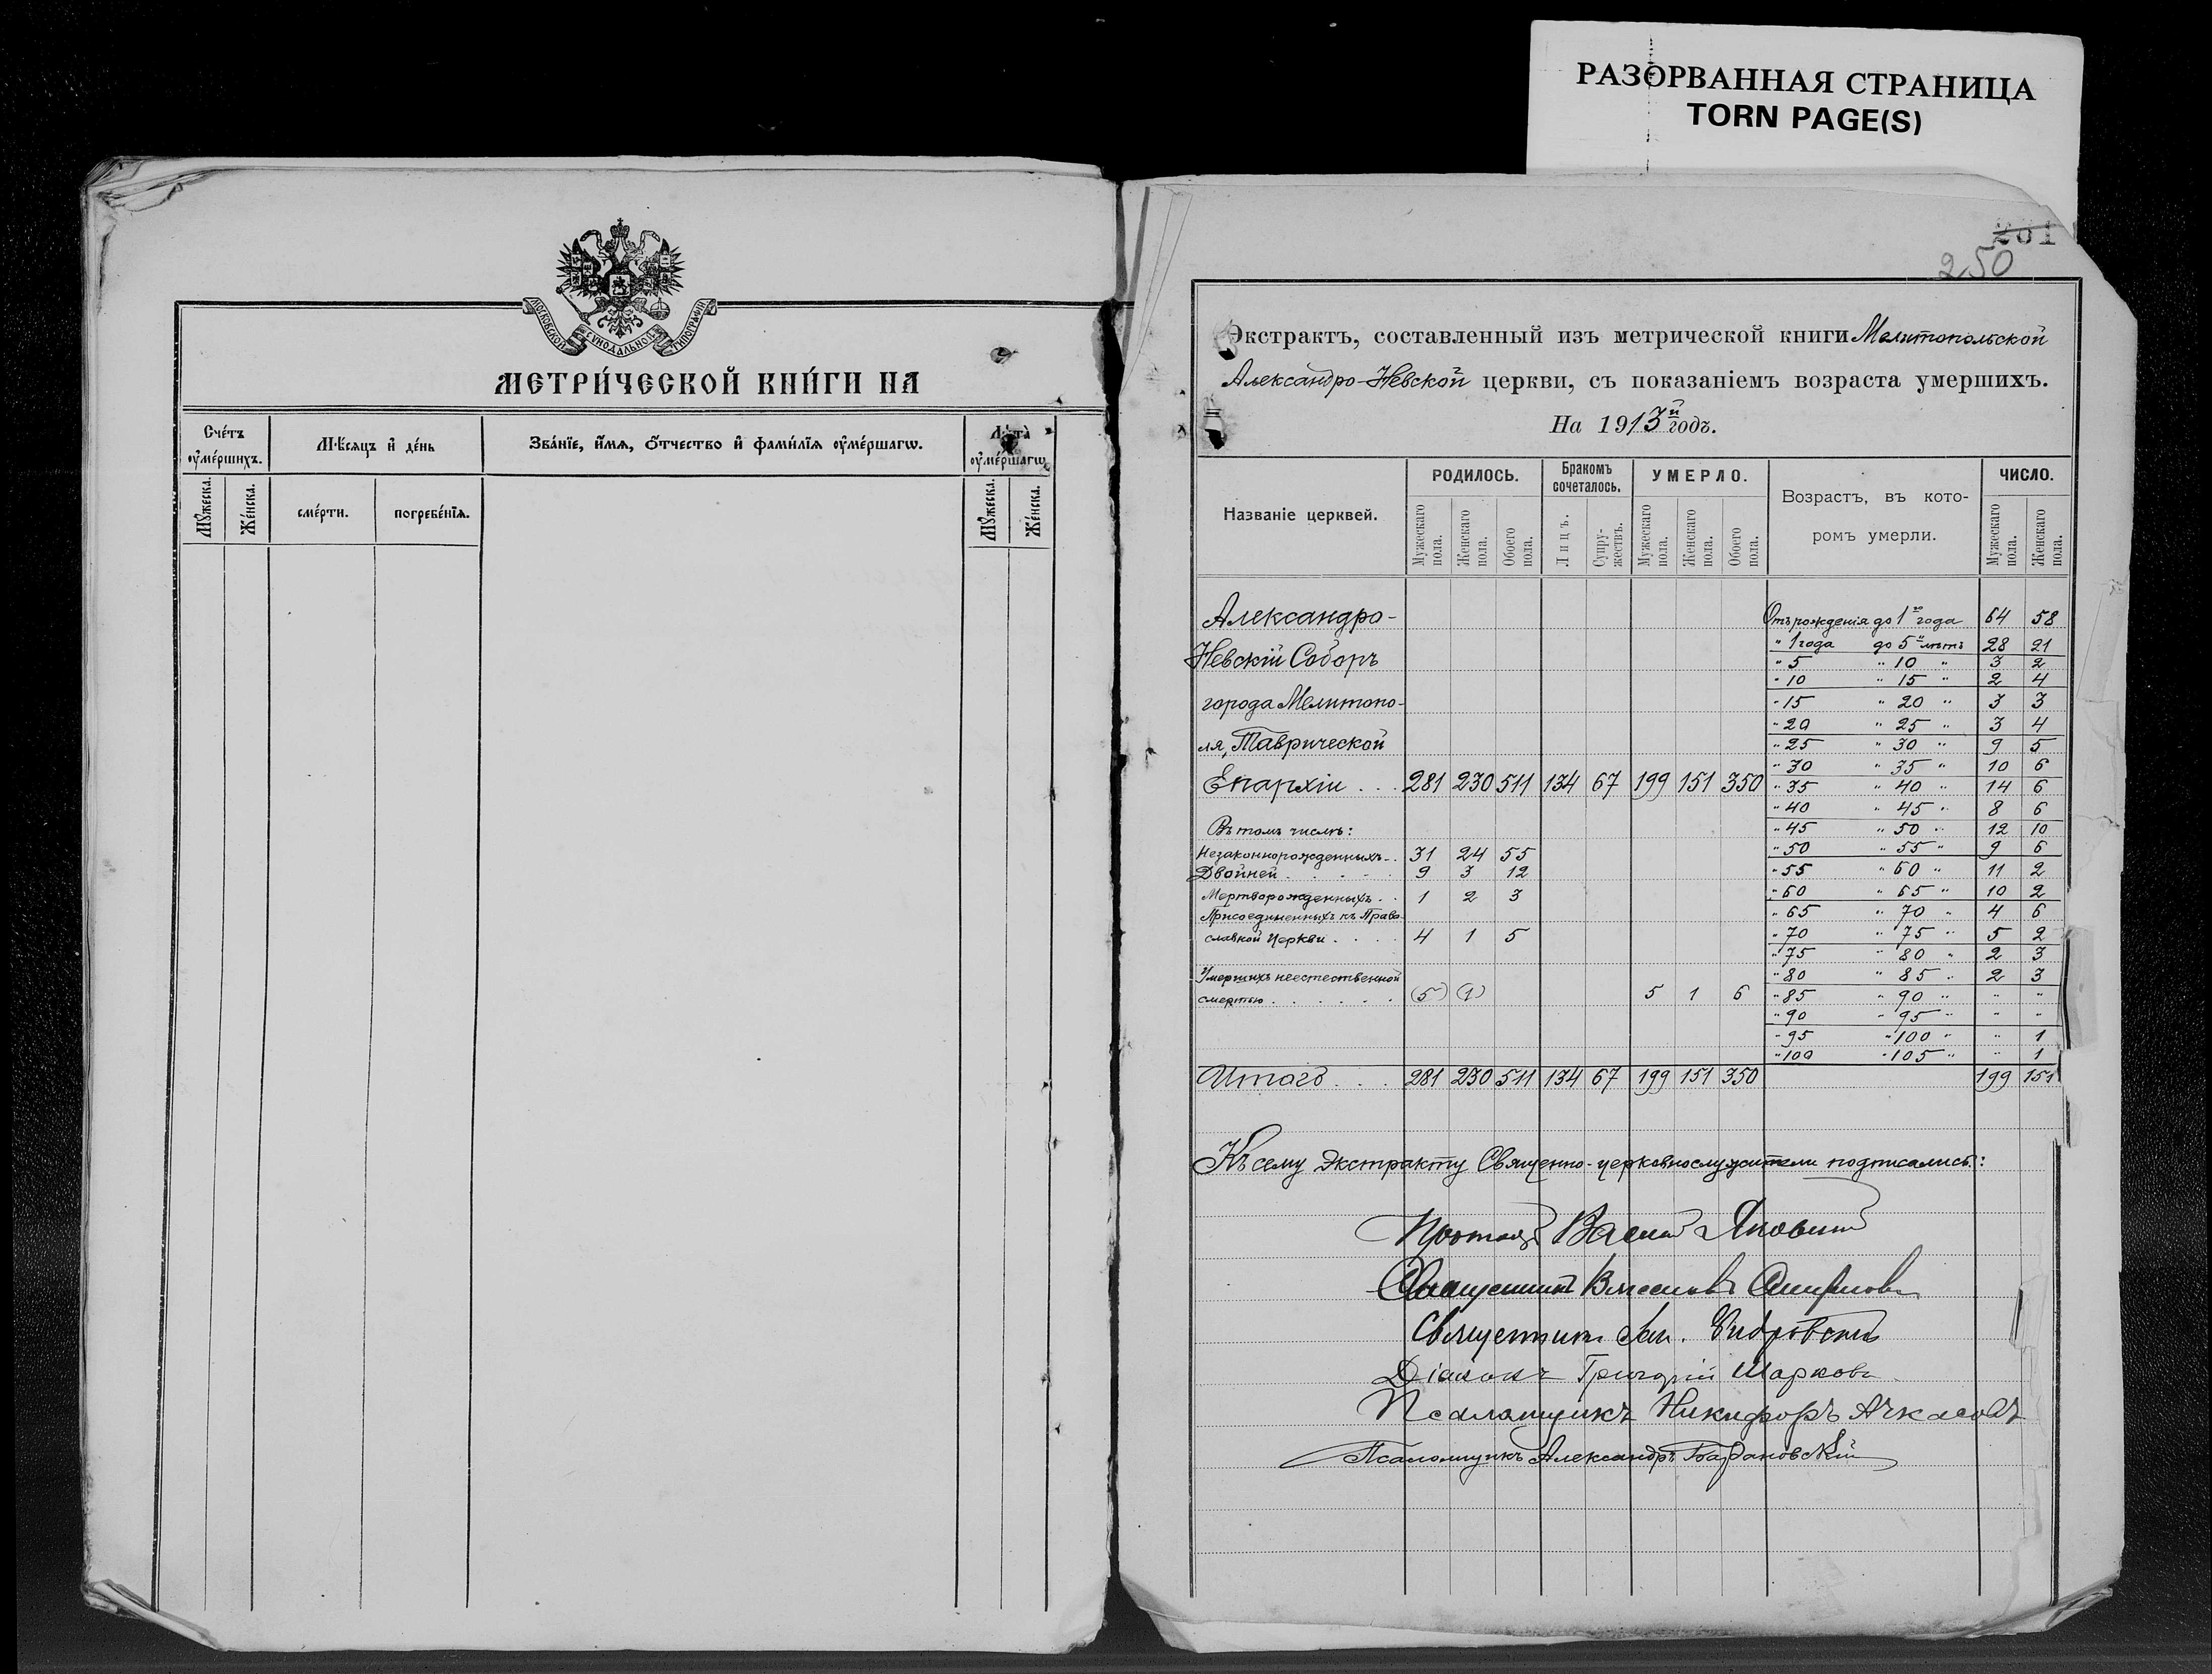 РАЗОРВАННАЯ СТРАНИЦА
TORN PAGE(S)
МОСКОВСКОЙ СѴНОДАЛЬНОЙ ТИПОГРАФІИ
МЕТРИ́ЧЕСКОЙ КНИ́ГИ НА
Сче́тъ ᲂу҆ме́ршихъ.
Мѣ́сѧцъ и҆ де́нь
Зва́нїе, и҆́мѧ, ѻ҆́тчество и҆ фами́лїѧ ᲂу҆ме́ршагѡ.
Лѣ̀та ᲂу҆ме́ршагѡ
Мꙋ́жеска.
Же́нска.
сме́рти.
погребе́нїѧ.
Мꙋ́жеска.
Же́нска.
281
250
Экстрактъ, составленный изъ метрической книги Мелитопольской
Александро-Невской церкви, съ показаніемъ возраста умершихъ.
На 1913й годъ.
Названіе церквей.
РОДИЛОСЬ.
Бракомъ сочеталось.
УМЕРЛО.
Возрастъ, въ кото-
ромъ умерли.
ЧИСЛО.
Мужескаго пола.
Женскаго пола.
Обоего пола.
Лицъ.
Супружествъ.
Мужескаго пола.
Женскаго пола.
Обоего пола.
Мужескаго пола.
Женскаго пола.
Александро- Отъ рожденія до 1го года 64 58
" 1 года до 5ти лѣтъ 28 21
Невскій Соборъ " 5 " 10 " 3 2
" 10 " 15 " 2 4
города Мелитопо- " 15 " 20 " 3 3
" 20 " 25 " 3 4
ля, Таврической " 25 " 30 " 9 5
" 30 " 35 " 10 6
Епархіи . . . 281 230 511 134 67 199 151 350 " 35 " 40 " 14 6
" 40 " 45 " 8 6
Въ томъ числѣ: " 45 " 50 " 12 10
Незаконнорожденныхъ . . 31 24 55 " 50 " 55 " 9 6
Двойней . . . . . 9 3 12 " 55 " 60 " 11 2
Мертворожденныхъ . . 1 2 3 " 60 " 65 " 10 2
Присоединенныхъ къ Право- " 65 " 70 " 4 6
славной Церкви . . . . 4 1 5 " 70 " 75 " 5 2
" 75 " 80 " 2 3
Умершихъ неестественной " 80 " 85 " 2 3
смертью . . . . . . (5) (1) 5 1 6 " 85 " 90 " " "
" 90 " 95 " " "
" 95 " 100 " " 1
" 100 " 105 " " 1
Итого . . . 281 230 511 134 67 199 151 350 199 151
Къ сему Экстракту Священно-церковнослужители подписались:
Священникъ
Священникъ
Діаконъ Григорій Шарковъ
Псаломщикъ Никифоръ Ачкасовъ
Псаломщикъ Александръ Барановскій